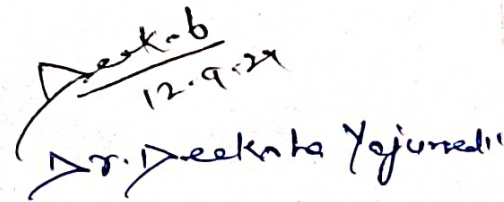 Deek-b
12.9.24
Dr. Deeksha Yajurvedi